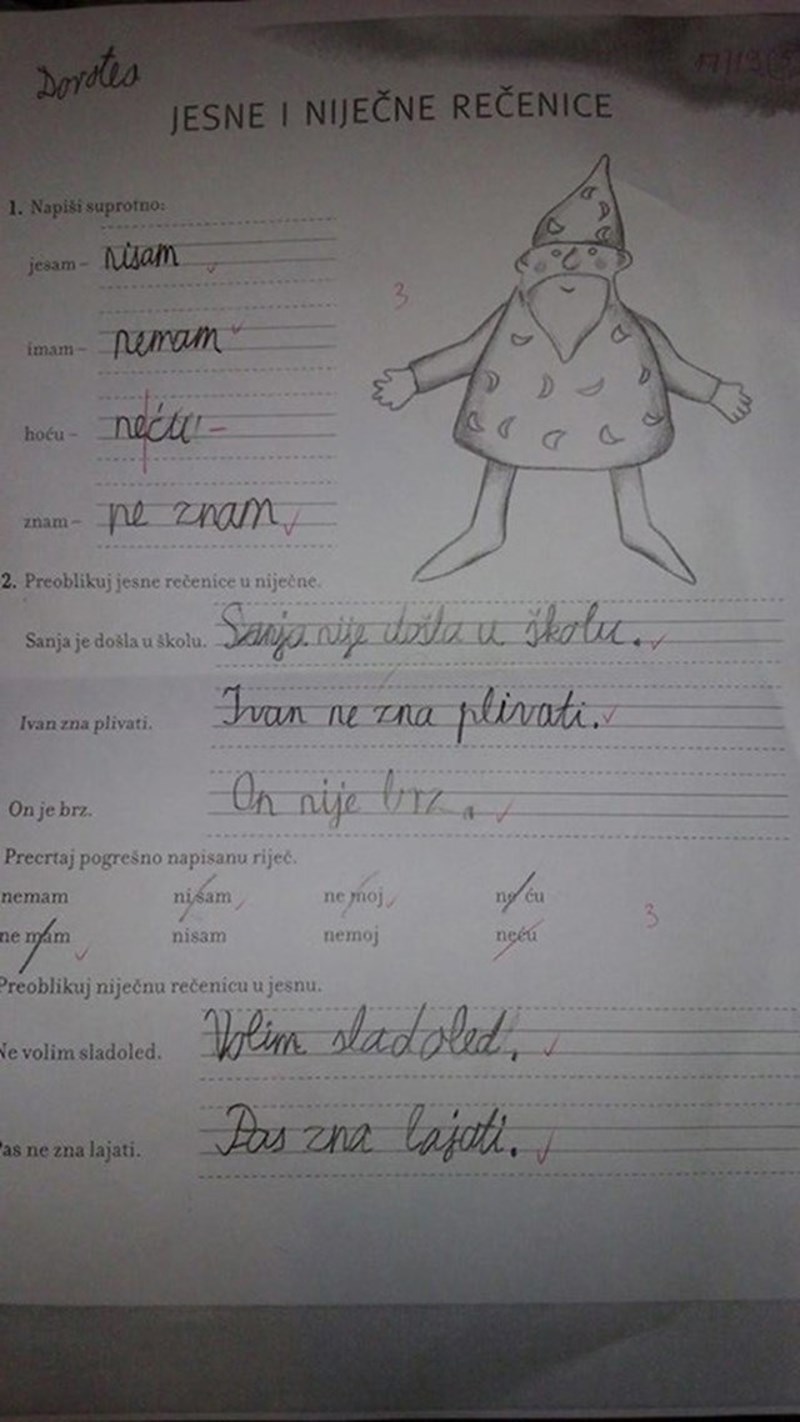 Dorotea
JESNE I NIJEČNE REČENICE
1. Napiši suprotno:
jesam – nisam
3
imam – nemam
hoću – neću
znam – ne znam
2. Preoblikuj jesne rečenice u niječne.
Sanja je došla u školu. Sanja nije došla u školu.
Ivan zna plivati. Ivan ne zna plivati.
On je brz. On nije brz.
Precrtaj pogrešno napisanu riječ.
nemam ni sam ne moj ne ću
ne mam nisam nemoj neću
3
Preoblikuj niječnu rečenicu u jesnu.
Ne volim sladoled. Volim sladoled.
Pas ne zna lajati. Pas zna lajati.